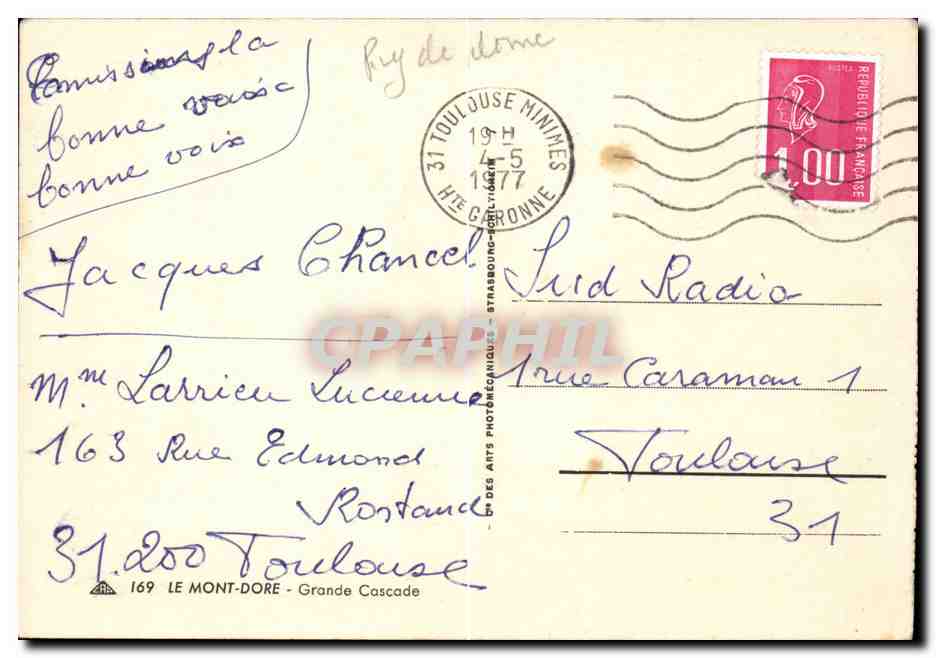 Puy de dome
Emission la
bonne voix
bonne voix
31 TOULOUSE MINIMES
19H
4-5
1977
HTE GARONNE
POSTES
REPUBLIQUE FRANÇAISE
1,00
Jacques Chancel
Mme Larrieu Lucienne
163 Rue Edmond
Rostand
31.200 Toulouse
169 LE MONT-DORE - Grande Cascade
Cie DES ARTS PHOTOMÉCANIQUES - STRASBOURG-SCHILTIGHEIM
Sud Radio
1 rue Caraman 1
Toulouse
31
CPAPHIL